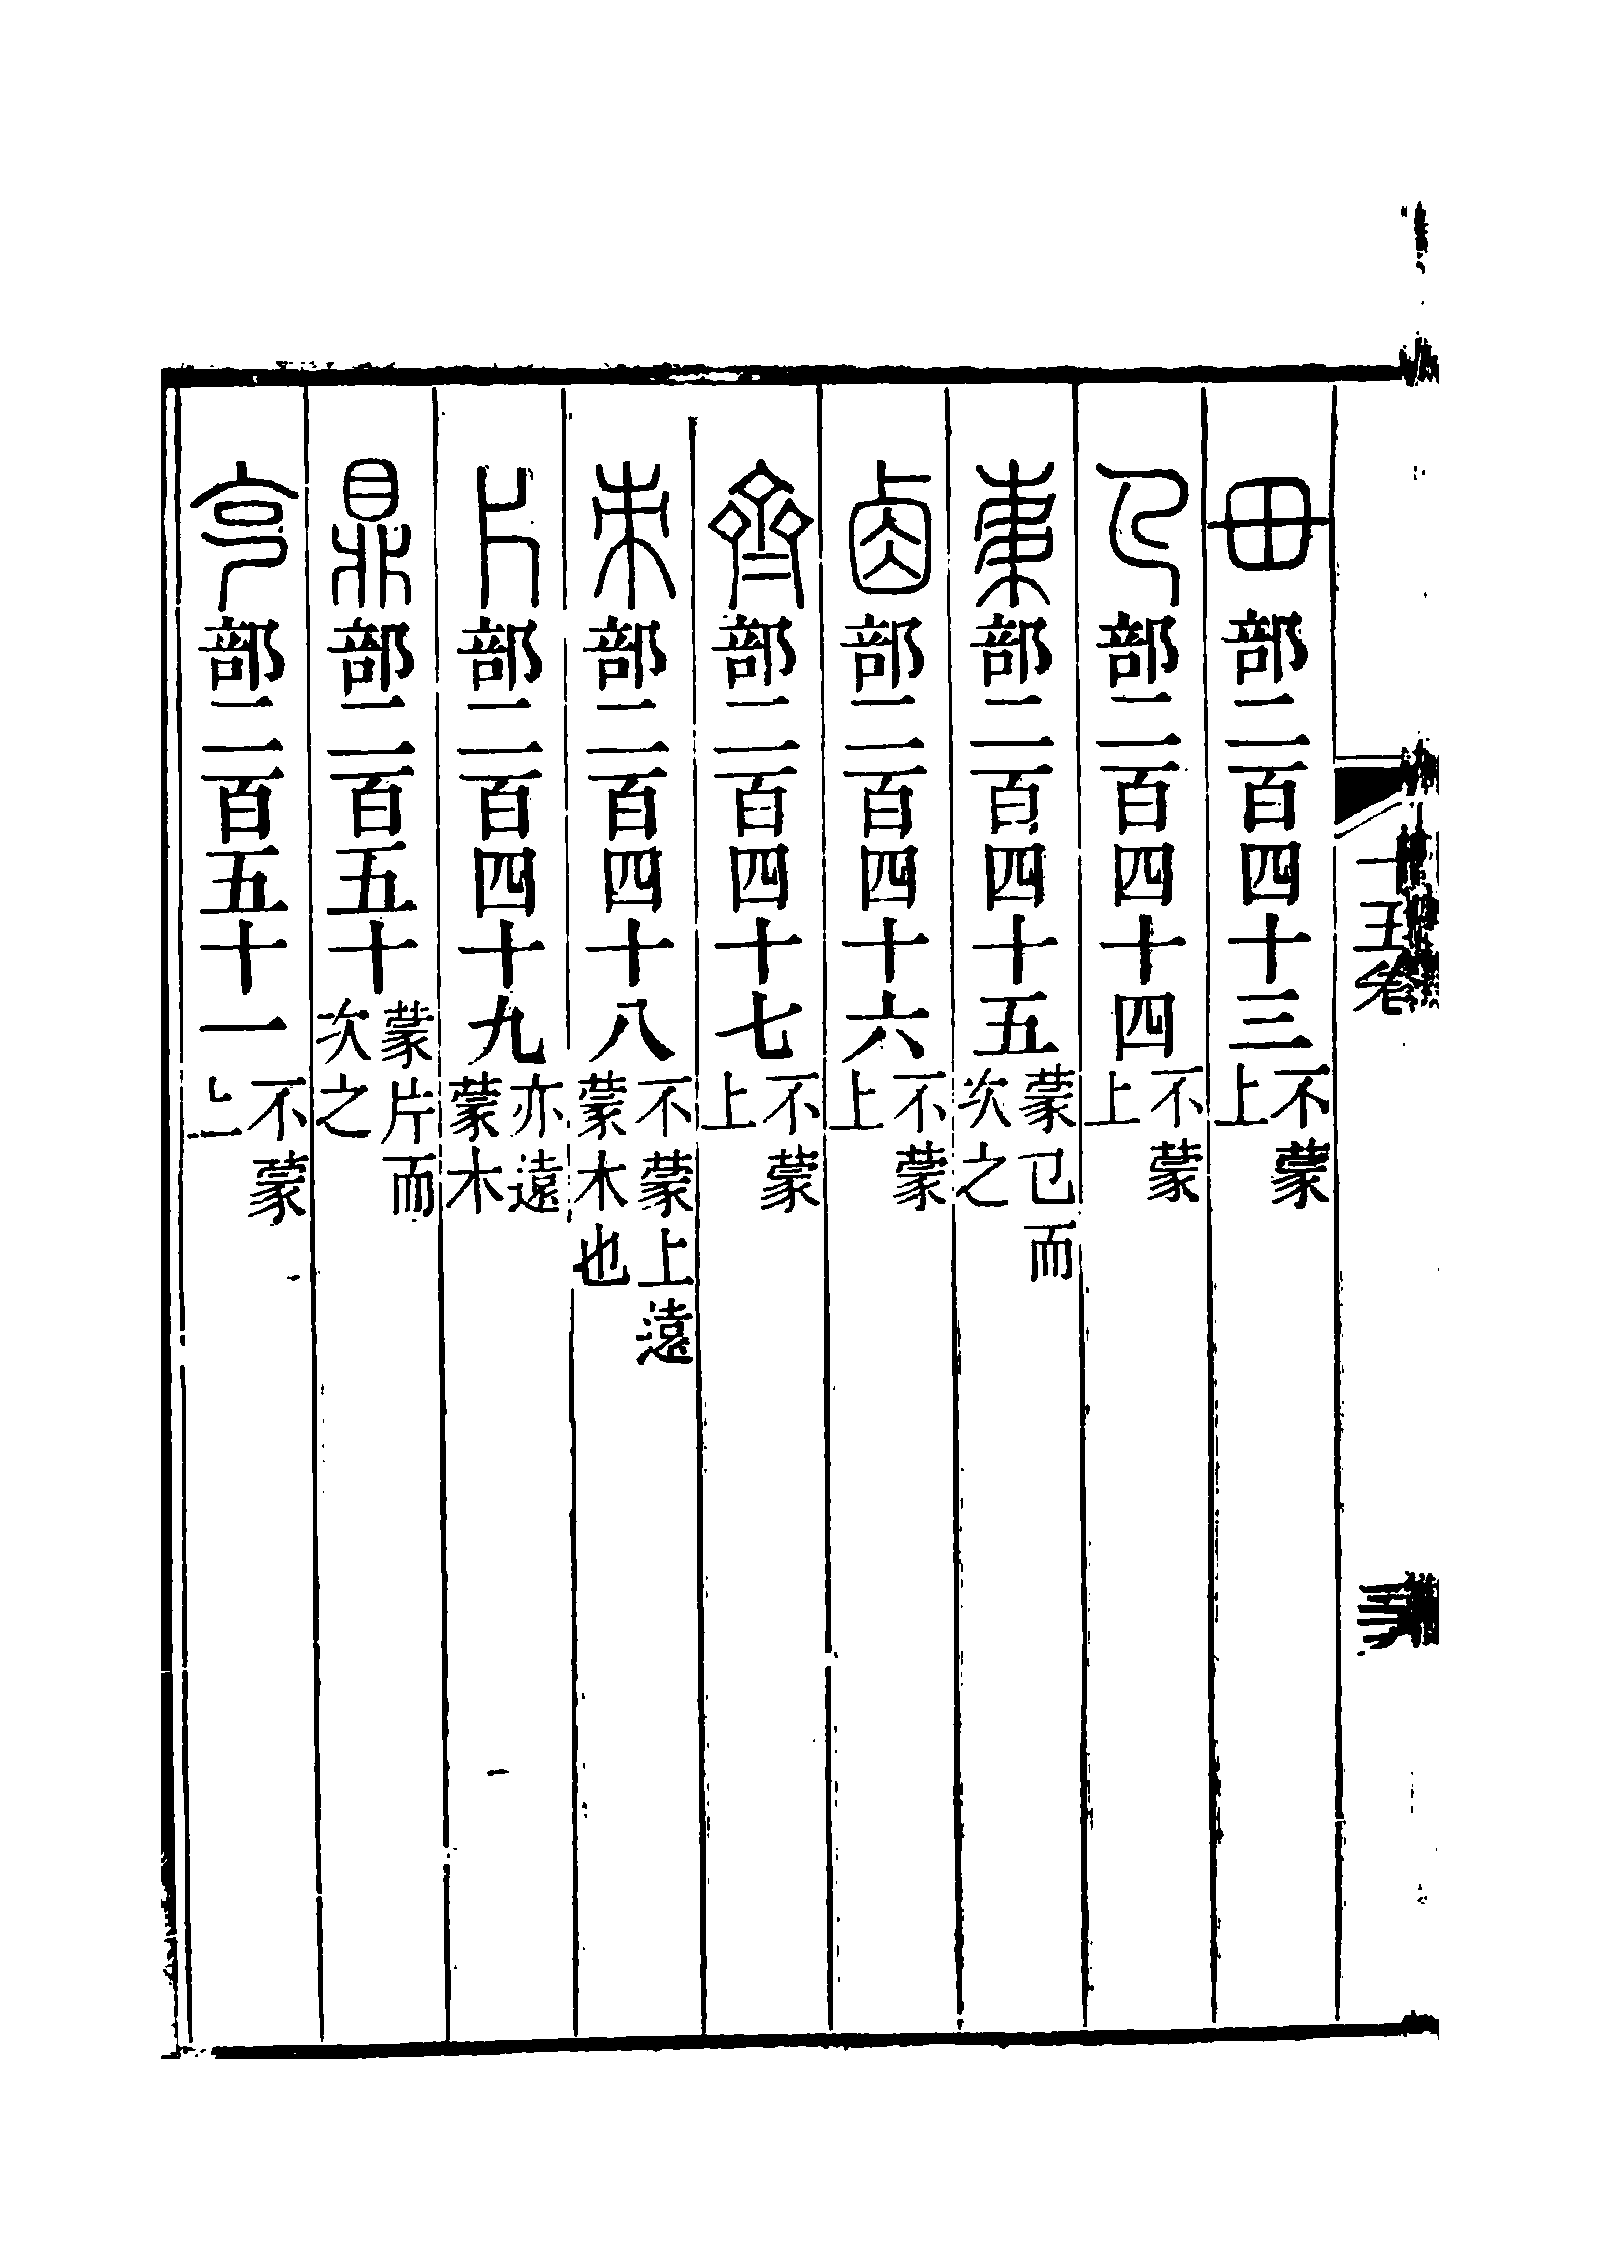 毌部二百四十三不蒙上
𢎘部二百四十四不蒙上
𣐺部二百四十五蒙𢎘而次之
𠧪部二百四十六不蒙上
齊部二百四十七不蒙上
朿部二百四十八不蒙上遠蒙木也
片部二百四十九亦遠蒙木
鼎部二百五十蒙片而次之
克部二百五十一不蒙上